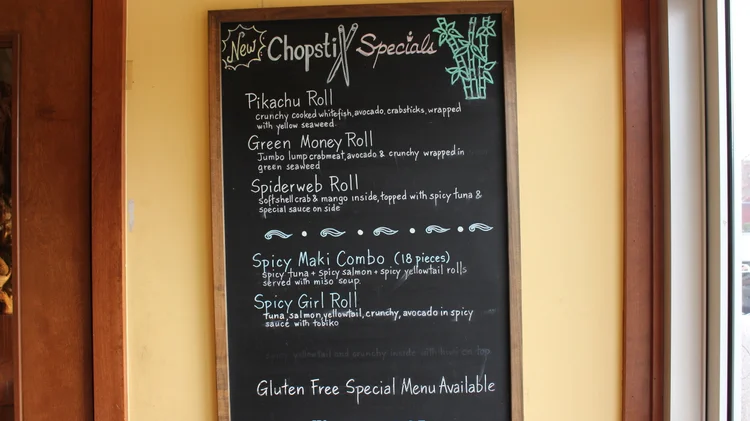 New Chopstix Specials
Pikachu Roll
crunchy cooked whitefish, avocado, crabsticks, wrapped
with yellow seaweed
Green Money Roll
Jumbo lump crabmeat, avocado & crunchy wrapped in
green seaweed
Spiderweb Roll
softshell crab & mango inside, topped with spicy tuna &
special sauce on side
Spicy Maki Combo (18 pieces)
spicy tuna + spicy salmon + spicy yellowtail rolls
served with miso soup
Spicy Girl Roll
tuna, salmon, yellowtail, crunchy, avocado in spicy
sauce with tobiko
yellowtail and crunchy inside with
Gluten Free Special Menu Available